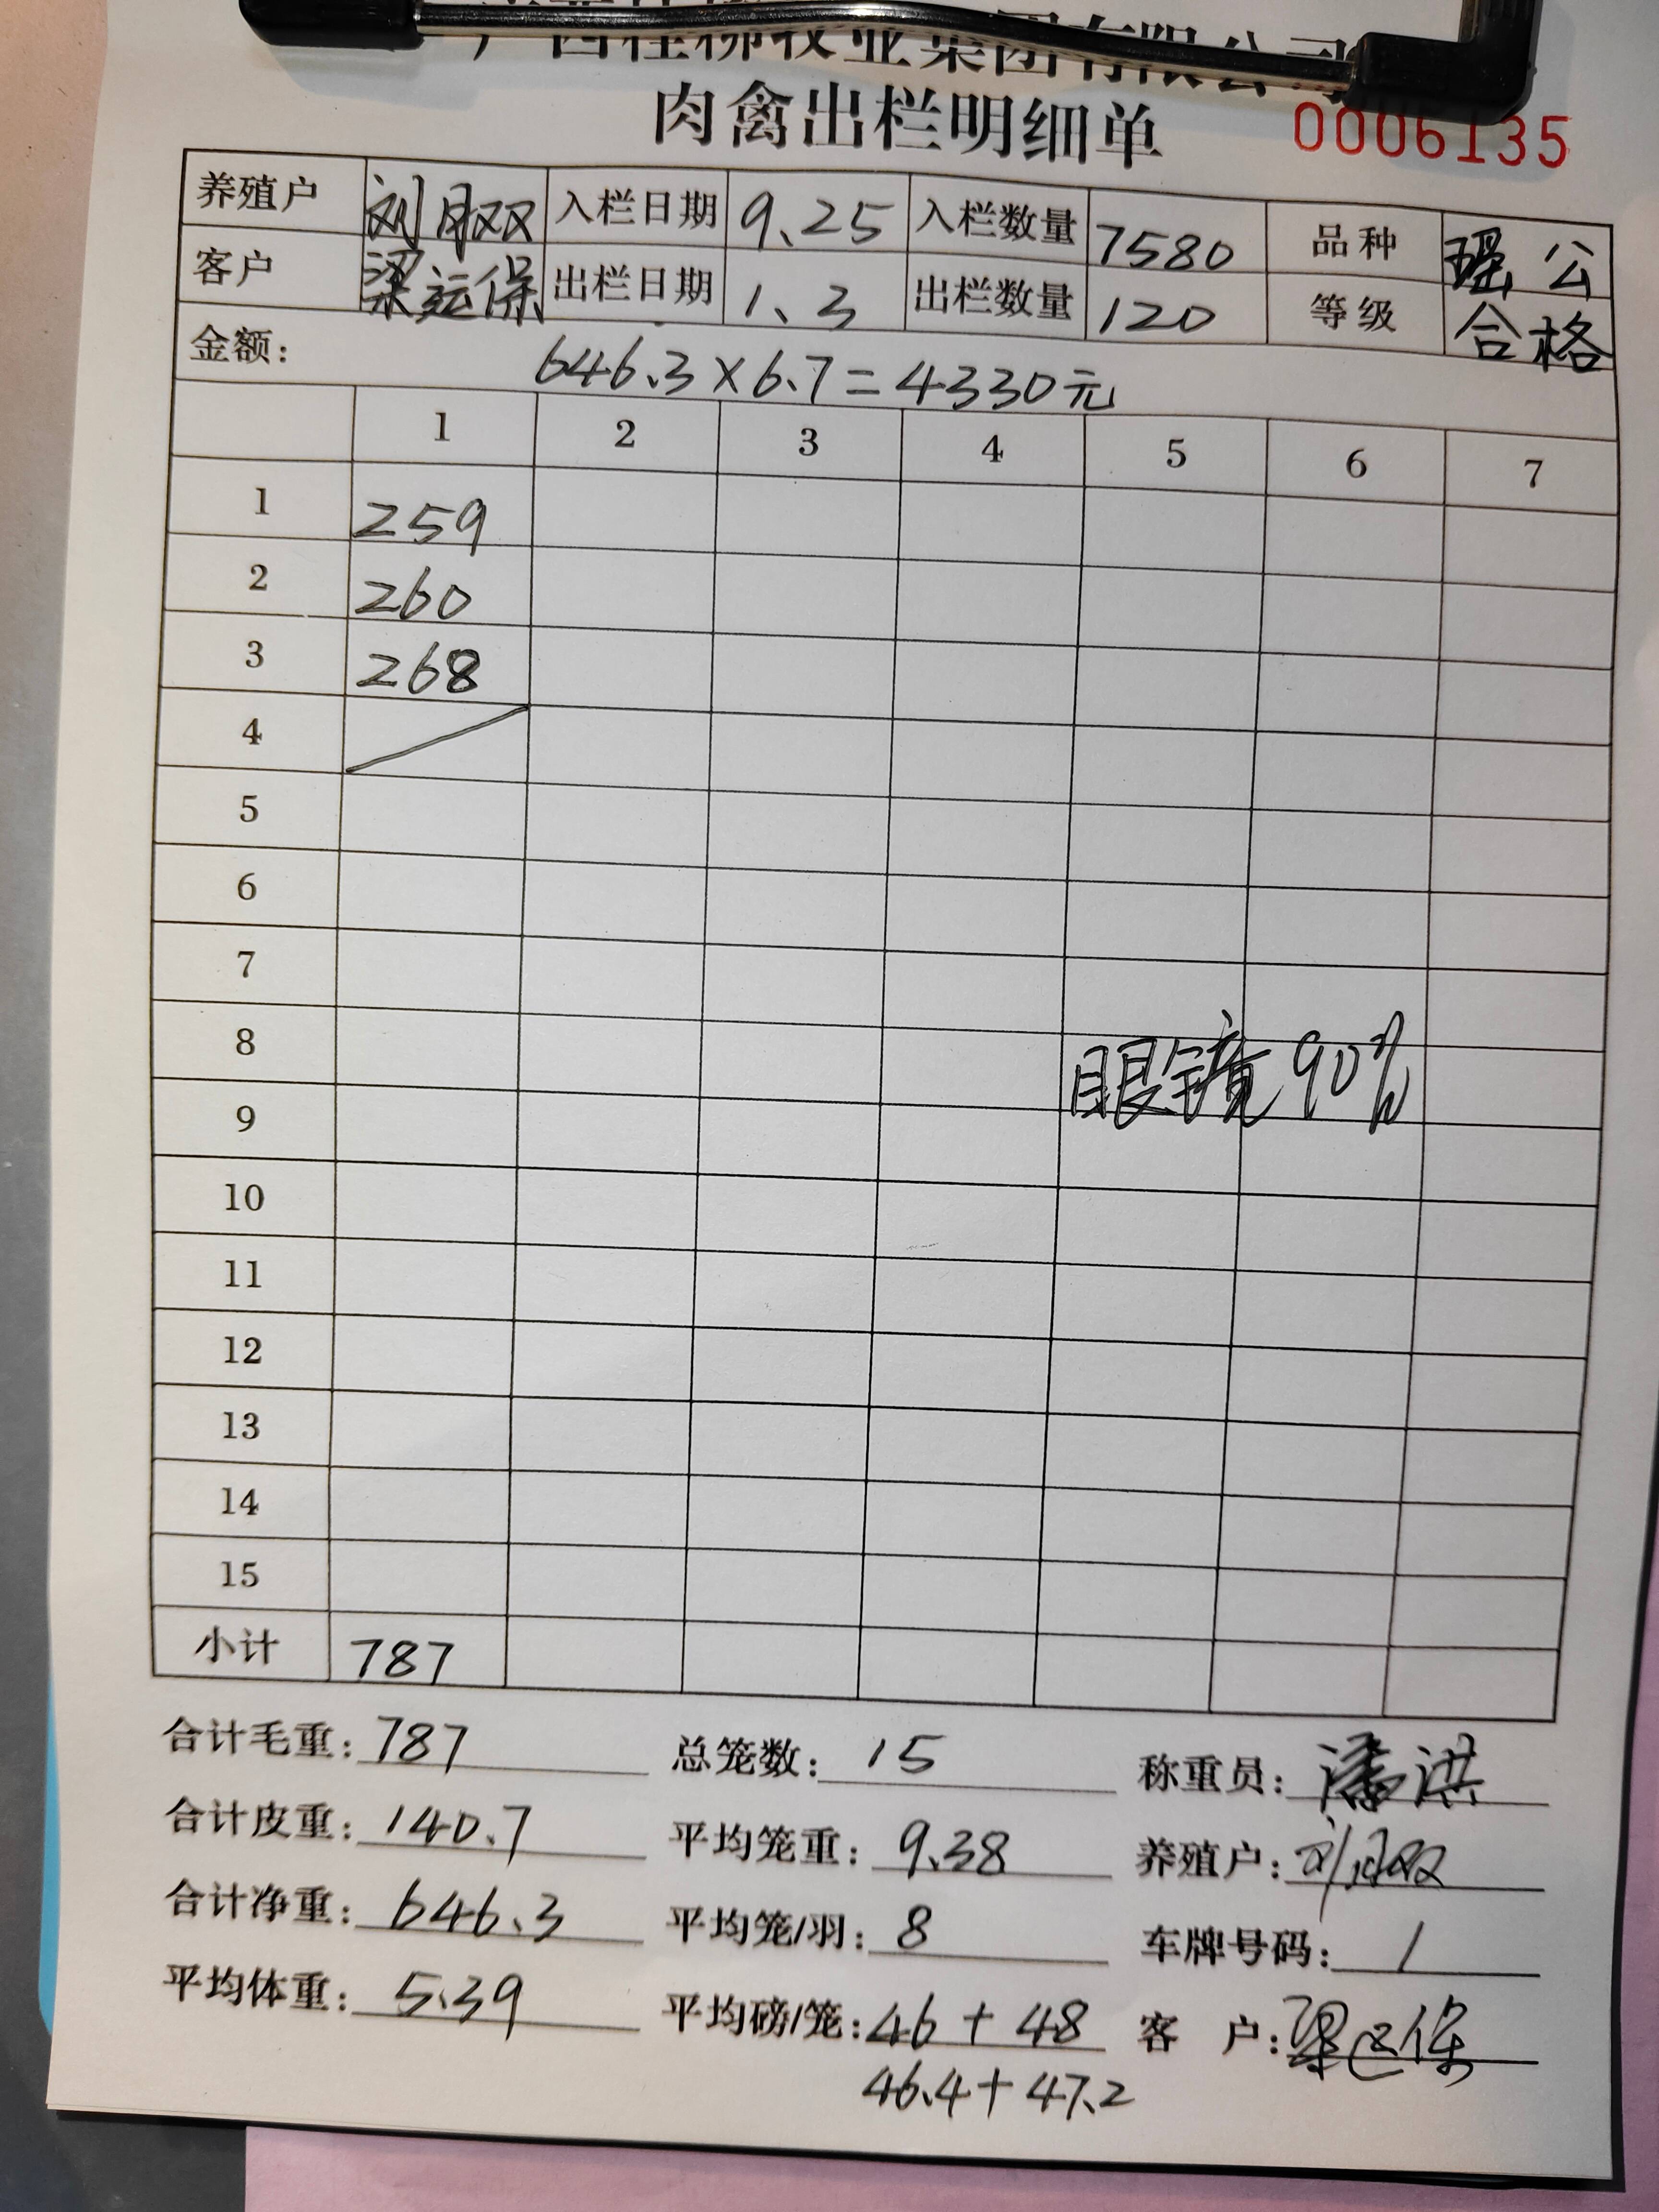 广西桂柳牧业集团有限公司
肉禽出栏明细单 0006135
养殖户 刘月双 入栏日期 9、25 入栏数量 7580 品种 瑶公
客户 梁运保 出栏日期 1、3 出栏数量 120 等级 合格
金额: 646.3×6.7=4330元
1 2 3 4 5 6 7
1 259
2 260
3 268
4
5
6
7
8 眼镜90%
9
10
11
12
13
14
15
小计 787
合计毛重: 787 总笼数: 15 称重员: 潘洪
合计皮重: 140.7 平均笼重: 9.38 养殖户: 刘月双
合计净重: 646.3 平均笼/羽: 8 车牌号码: /
平均体重: 5.39 平均磅/笼: 46+48 客 户: 梁运保
46.4+47.2